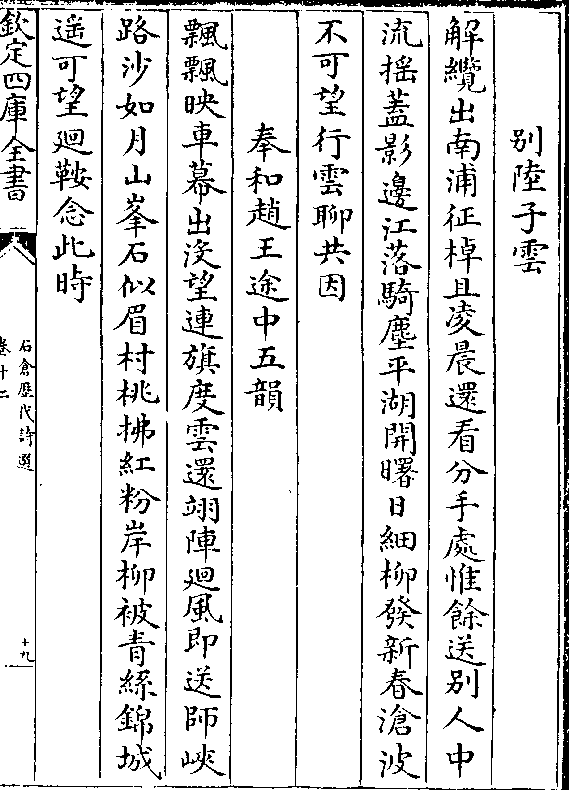 别陸子雲
解纜出南浦征棹且凌晨還看分手處惟餘送别人中
流揺蓋影邊江落騎塵平湖開曙日細柳發新春滄波
不可望行雲聊共因
奉和趙王途中五韻
飄飄映車幕出沒望連旗度雲還翊陣廻風即送師峽
路沙如月山峯石似眉村桃拂紅粉岸柳被青絲錦城
遥可望廻鞍念此時
欽定四庫全書
石倉歴代詩選
卷十二
十九